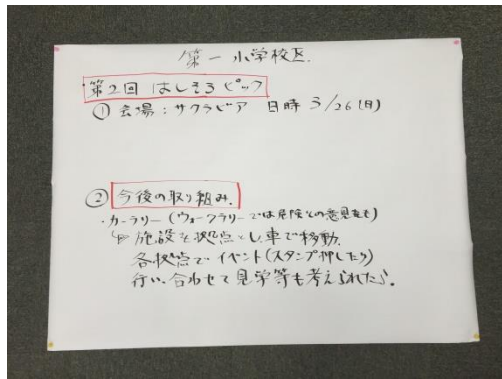 第一小学校区.
第2回 はしまるピック
① 会場:サクラビア 日時 3/26(日)
② 今後の取り組み.
・カーラリー(ウォークラリーでは危険との意見有も)
↳ 施設を拠点とし、車で移動.
各拠点でイベント(スタンプ押したり)
行い、合わせて見学等も考えられたら.